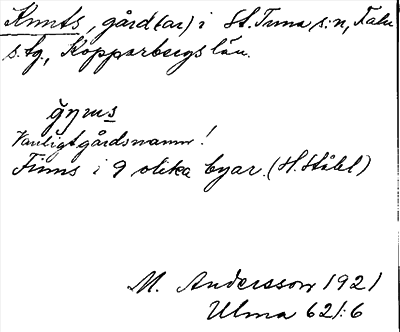 Knuts, gård(ar) i St. Tuna s:n, Falu
s.tg., Kopparbergs län.
Vanligt gårdsnamn!
Finns i 9 olika byar. (H. Ståhl)
M. Andersson 1921
Ulma 62:6